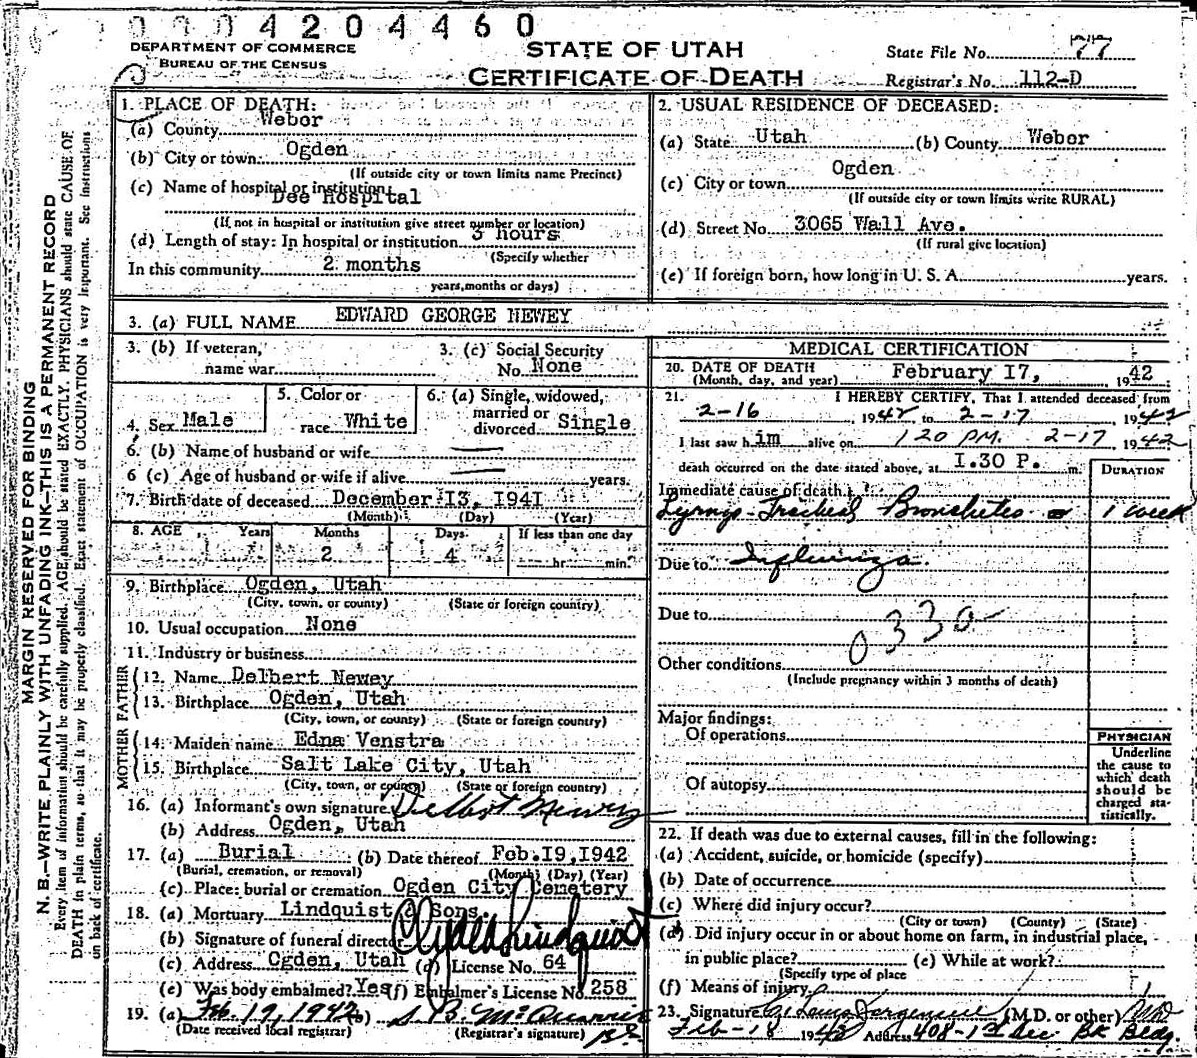 0004204460
DEPARTMENT OF COMMERCE
BUREAU OF THE CENSUS
STATE OF UTAH
CERTIFICATE OF DEATH
State File No. 77
Registrar's No. 112-D
MARGIN RESERVED FOR BINDING
N. B.—WRITE PLAINLY WITH UNFADING INK—THIS IS A PERMANENT RECORD
Every item of information should be carefully supplied. AGE should be stated EXACTLY. PHYSICIANS should state CAUSE OF
DEATH in plain terms, so that it may be properly classified. Exact statement of OCCUPATION is very important. See instructions
on back of certificate.
1. PLACE OF DEATH:
(a) County Weber
(b) City or town: Ogden
(If outside city or town limits name Precinct)
(c) Name of hospital or institution:
Dee Hospital
(If not in hospital or institution give street number or location)
(d) Length of stay: In hospital or institution hours
(Specify whether
In this community 2 months
years, months or days)
2. USUAL RESIDENCE OF DECEASED:
(a) State Utah (b) County Weber
(c) City or town Ogden
(If outside city or town limits write RURAL)
(d) Street No. 3065 Wall Ave.
(If rural give location)
(e) If foreign born, how long in U. S. A. years.
3. (a) FULL NAME EDWARD GEORGE NEWEY
3. (b) If veteran, name war
3. (c) Social Security No. None
4. Sex Male
5. Color or race White
6. (a) Single, widowed, married or divorced Single
6. (b) Name of husband or wife
6 (c) Age of husband or wife if alive years.
7. Birth date of deceased December I3, 194I
(Month) (Day) (Year)
8. AGE Years Months Days If less than one day
2 4 hr. min.
9. Birthplace Ogden, Utah
(City, town, or county) (State or foreign country)
10. Usual occupation None
11. Industry or business
FATHER
12. Name Delbert Newey
13. Birthplace Ogden, Utah
(City, town, or county) (State or foreign country)
MOTHER
14. Maiden name Edna Venstra
15. Birthplace Salt Lake City, Utah
(City, town, or county) (State or foreign country)
16. (a) Informant's own signature Delbert Newey
(b) Address Ogden, Utah
17. (a) Burial (b) Date thereof Feb. I9, 1942
(Burial, cremation, or removal) (Month) (Day) (Year)
(c) Place: burial or cremation Ogden City Cemetery
18. (a) Mortuary Lindquist & Sons.
(b) Signature of funeral director Clyde Lindquist
(c) Address Ogden, Utah (d) License No. 64
(e) Was body embalmed? Yes (f) Embalmer's License No. 258
19. (a) Feb. 19, 1942
(Date received local registrar) (Registrar's signature)
MEDICAL CERTIFICATION
20. DATE OF DEATH
(Month, day, and year) February I7, 1942
21. I HEREBY CERTIFY, That I attended deceased from
2-16 1942 to 2-17 1942
I last saw him alive on 120 PM. 2-17 1942
death occurred on the date stated above, at I.30 P. m.
DURATION
Immediate cause of death
Bronchitis 1 week
Due to Influenza.
Due to
0330
Other conditions
(Include pregnancy within 3 months of death)
Major findings:
Of operations
Of autopsy
PHYSICIAN
Underline
the cause to
which death
should be
charged sta-
tistically.
22. If death was due to external causes, fill in the following:
(a) Accident, suicide, or homicide (specify)
(b) Date of occurrence
(c) Where did injury occur?
(City or town) (County) (State)
(d) Did injury occur in or about home on farm, in industrial place,
in public place? (e) While at work?
(Specify type of place
(f) Means of injury
23. Signature (M.D. or other) MD
Feb-18 1942 Address 408-1st Sec Bk Bldg.